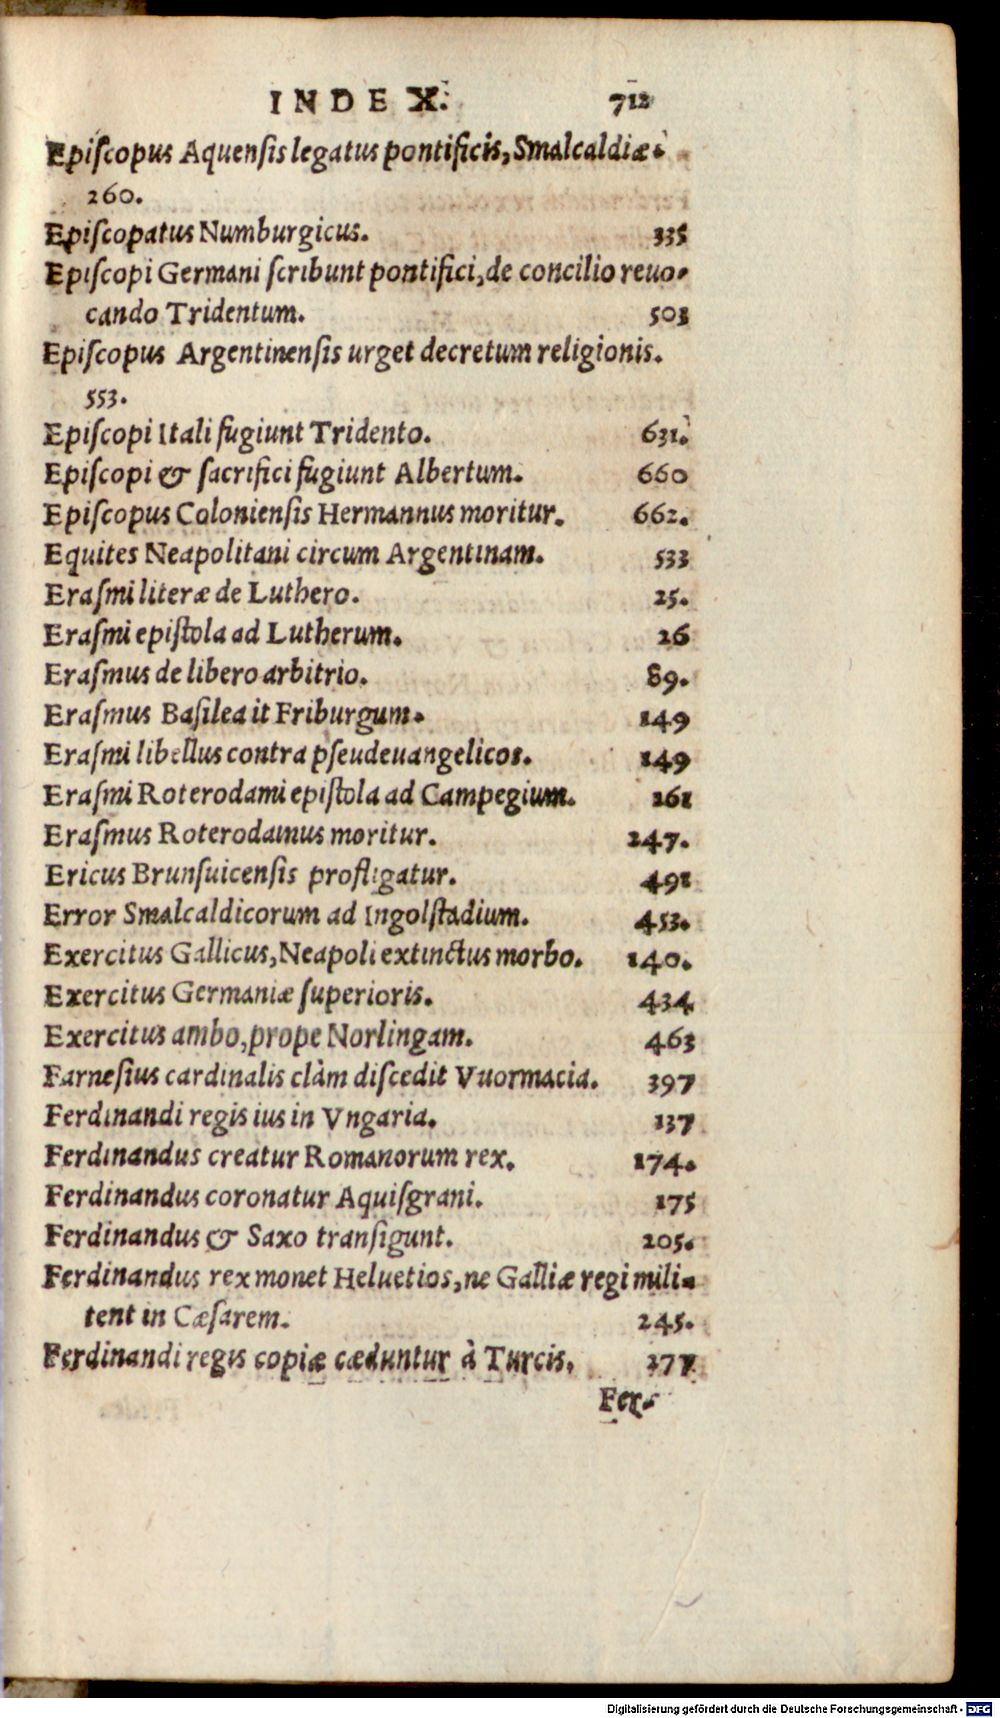 INDEX. 712
Epiſcopus Aquenſis legatus pontificis, Smalcaldiæ.
260.
Epiſcopatus Numburgicus. 335
Epiſcopi Germani ſcribunt pontifici, de concilio reuo-
cando Tridentum. 503
Epiſcopus Argentinenſis urget decretum religionis.
553.
Epiſcopi Itali fugiunt Tridento. 631.
Epiſcopi & ſacrifici fugiunt Albertum. 660
Epiſcopus Colonienſis Hermannus moritur. 662.
Equites Neapolitani circum Argentinam. 533
Eraſmi literæ de Luthero. 25.
Eraſmi epiſtola ad Lutherum. 26
Eraſmus de libero arbitrio. 89.
Eraſmus Baſilea it Friburgum. 149
Eraſmi libellus contra pſeudeuangelicos. 149
Eraſmi Roterodami epiſtola ad Campegium. 161
Eraſmus Roterodamus moritur. 247.
Ericus Brunſuicenſis profligatur. 491
Error Smalcaldicorum ad Ingolſtadium. 453.
Exercitus Gallicus, Neapoli extinctus morbo. 140.
Exercitus Germaniæ ſuperioris. 434
Exercitus ambo, prope Norlingam. 463
Farneſius cardinalis clàm diſcedit Vuormacia. 397
Ferdinandi regis ius in Vngaria. 137
Ferdinandus creatur Romanorum rex. 174.
Ferdinandus coronatur Aquiſgrani. 175
Ferdinandus & Saxo tranſigunt. 205.
Ferdinandus rex monet Heluetios, ne Galliæ regi mili-
tent in Cæſarem. 245.
Ferdinandi regis copiæ cæduntur à Turcis. 277
Fer-
Digitalisierung gefördert durch die Deutsche Forschungsgemeinschaft - DFG